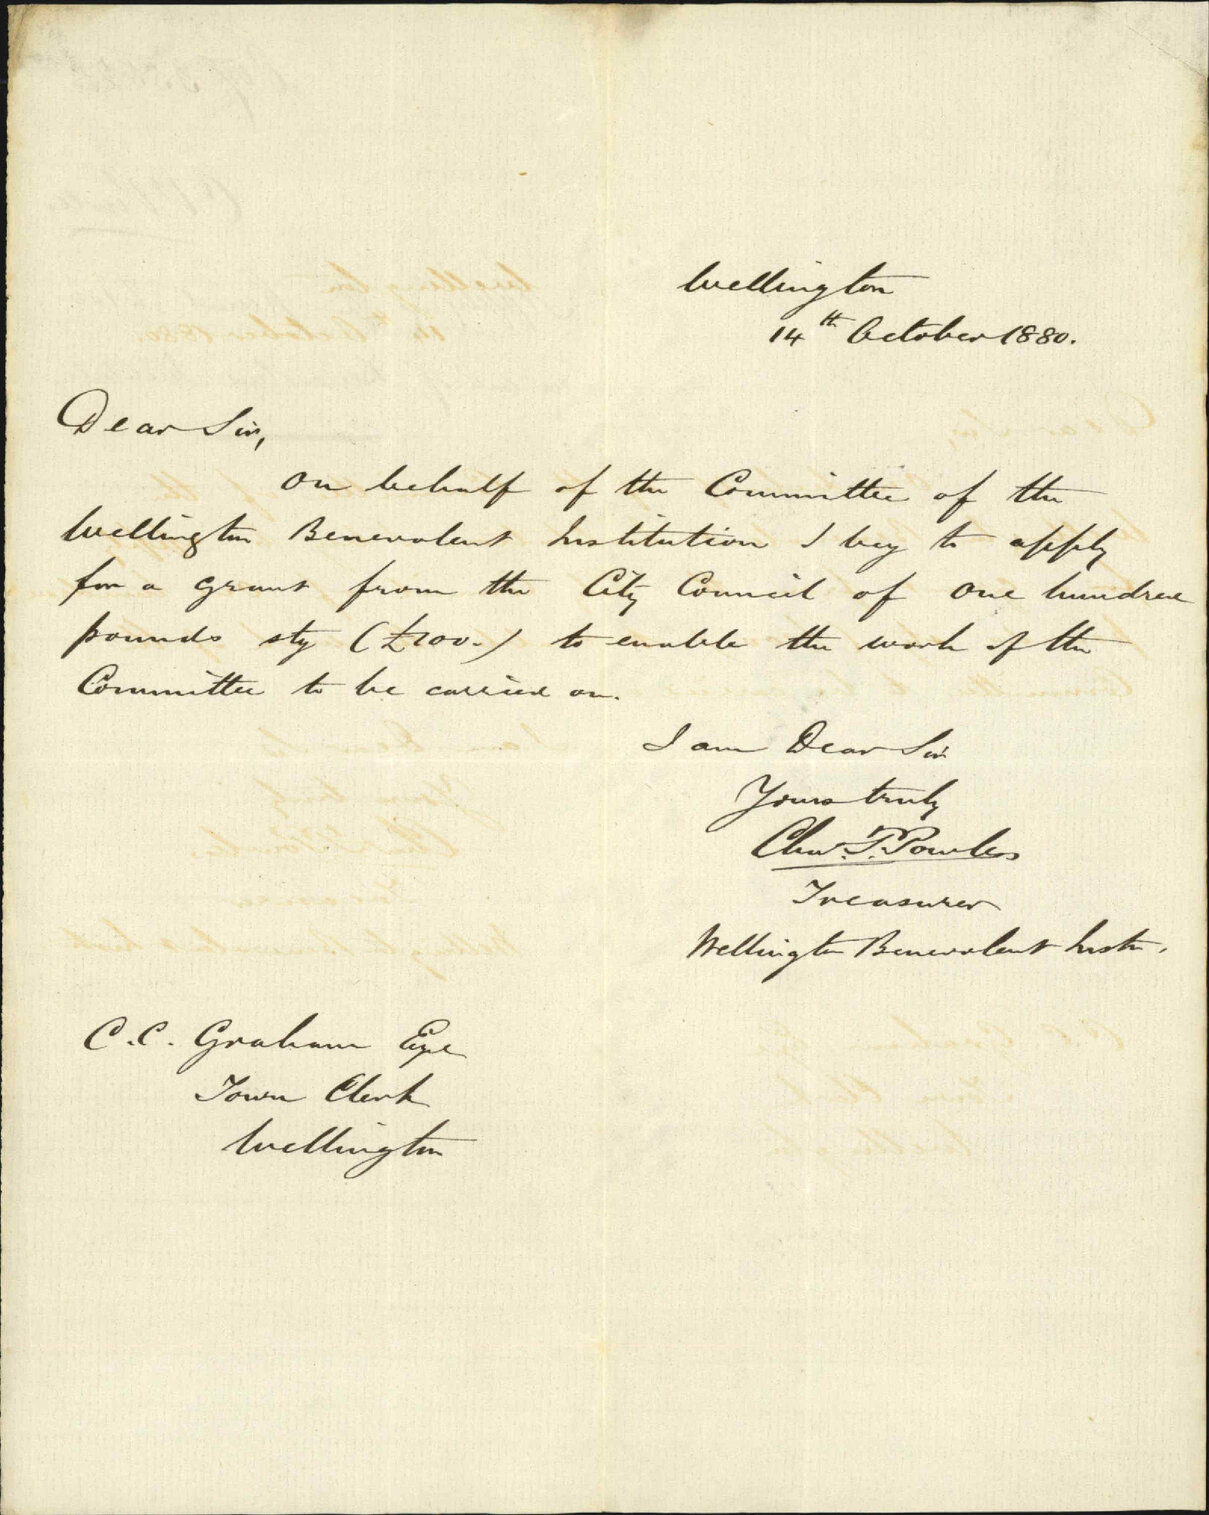 Wellington
14th October 1880.
Dear Sir,
On behalf of the Committee of the
Wellington Benevolent Institution I beg to apply
for a grant from the City Council of One hundred
pounds stg (£100.-) to enable the work of the
Committee to be carried on.
I am Dear Sir
Yours truly
Chas. P. Powles
Treasurer
Wellington Benevolent Instn.
C.C. Graham Esqre
Town Clerk
Wellington